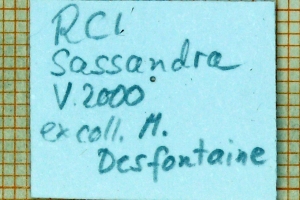 RCI
Sassandra
V.2000
ex coll. M.
Desfontaine